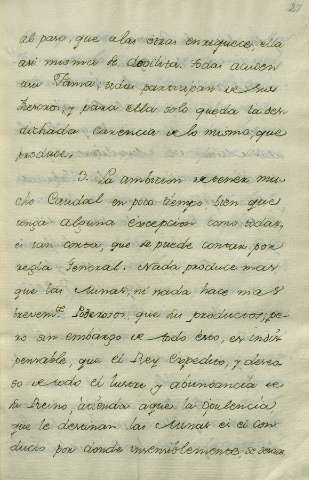 27
al paso, que a las otras enrriquece, ella
asi misma se devilita. todas acuden
asu Fama, todas participan de sus
tesoros, y para ella solo queda la des
dichada carencia de lo mismo, que
produce.
3. La ambicion de tener mu
cho Caudal en poco tiempo bien que
tenga alguna excepcion como todas,
es tan corta, que se puede contar por
regla General. Nada produce mas
que las Minas, ni nada hace mas
brevem.te Poderosos, que sus productos, pe
ro sin embargo de todo esso, es indis
pensable, que el Rey Expedito, y deseo
so de todo el lustre y abundancia de
su Reino, atienda aque la Opulencia
que le derraman las Minas es el con
ducto por donde insensiblemente, se